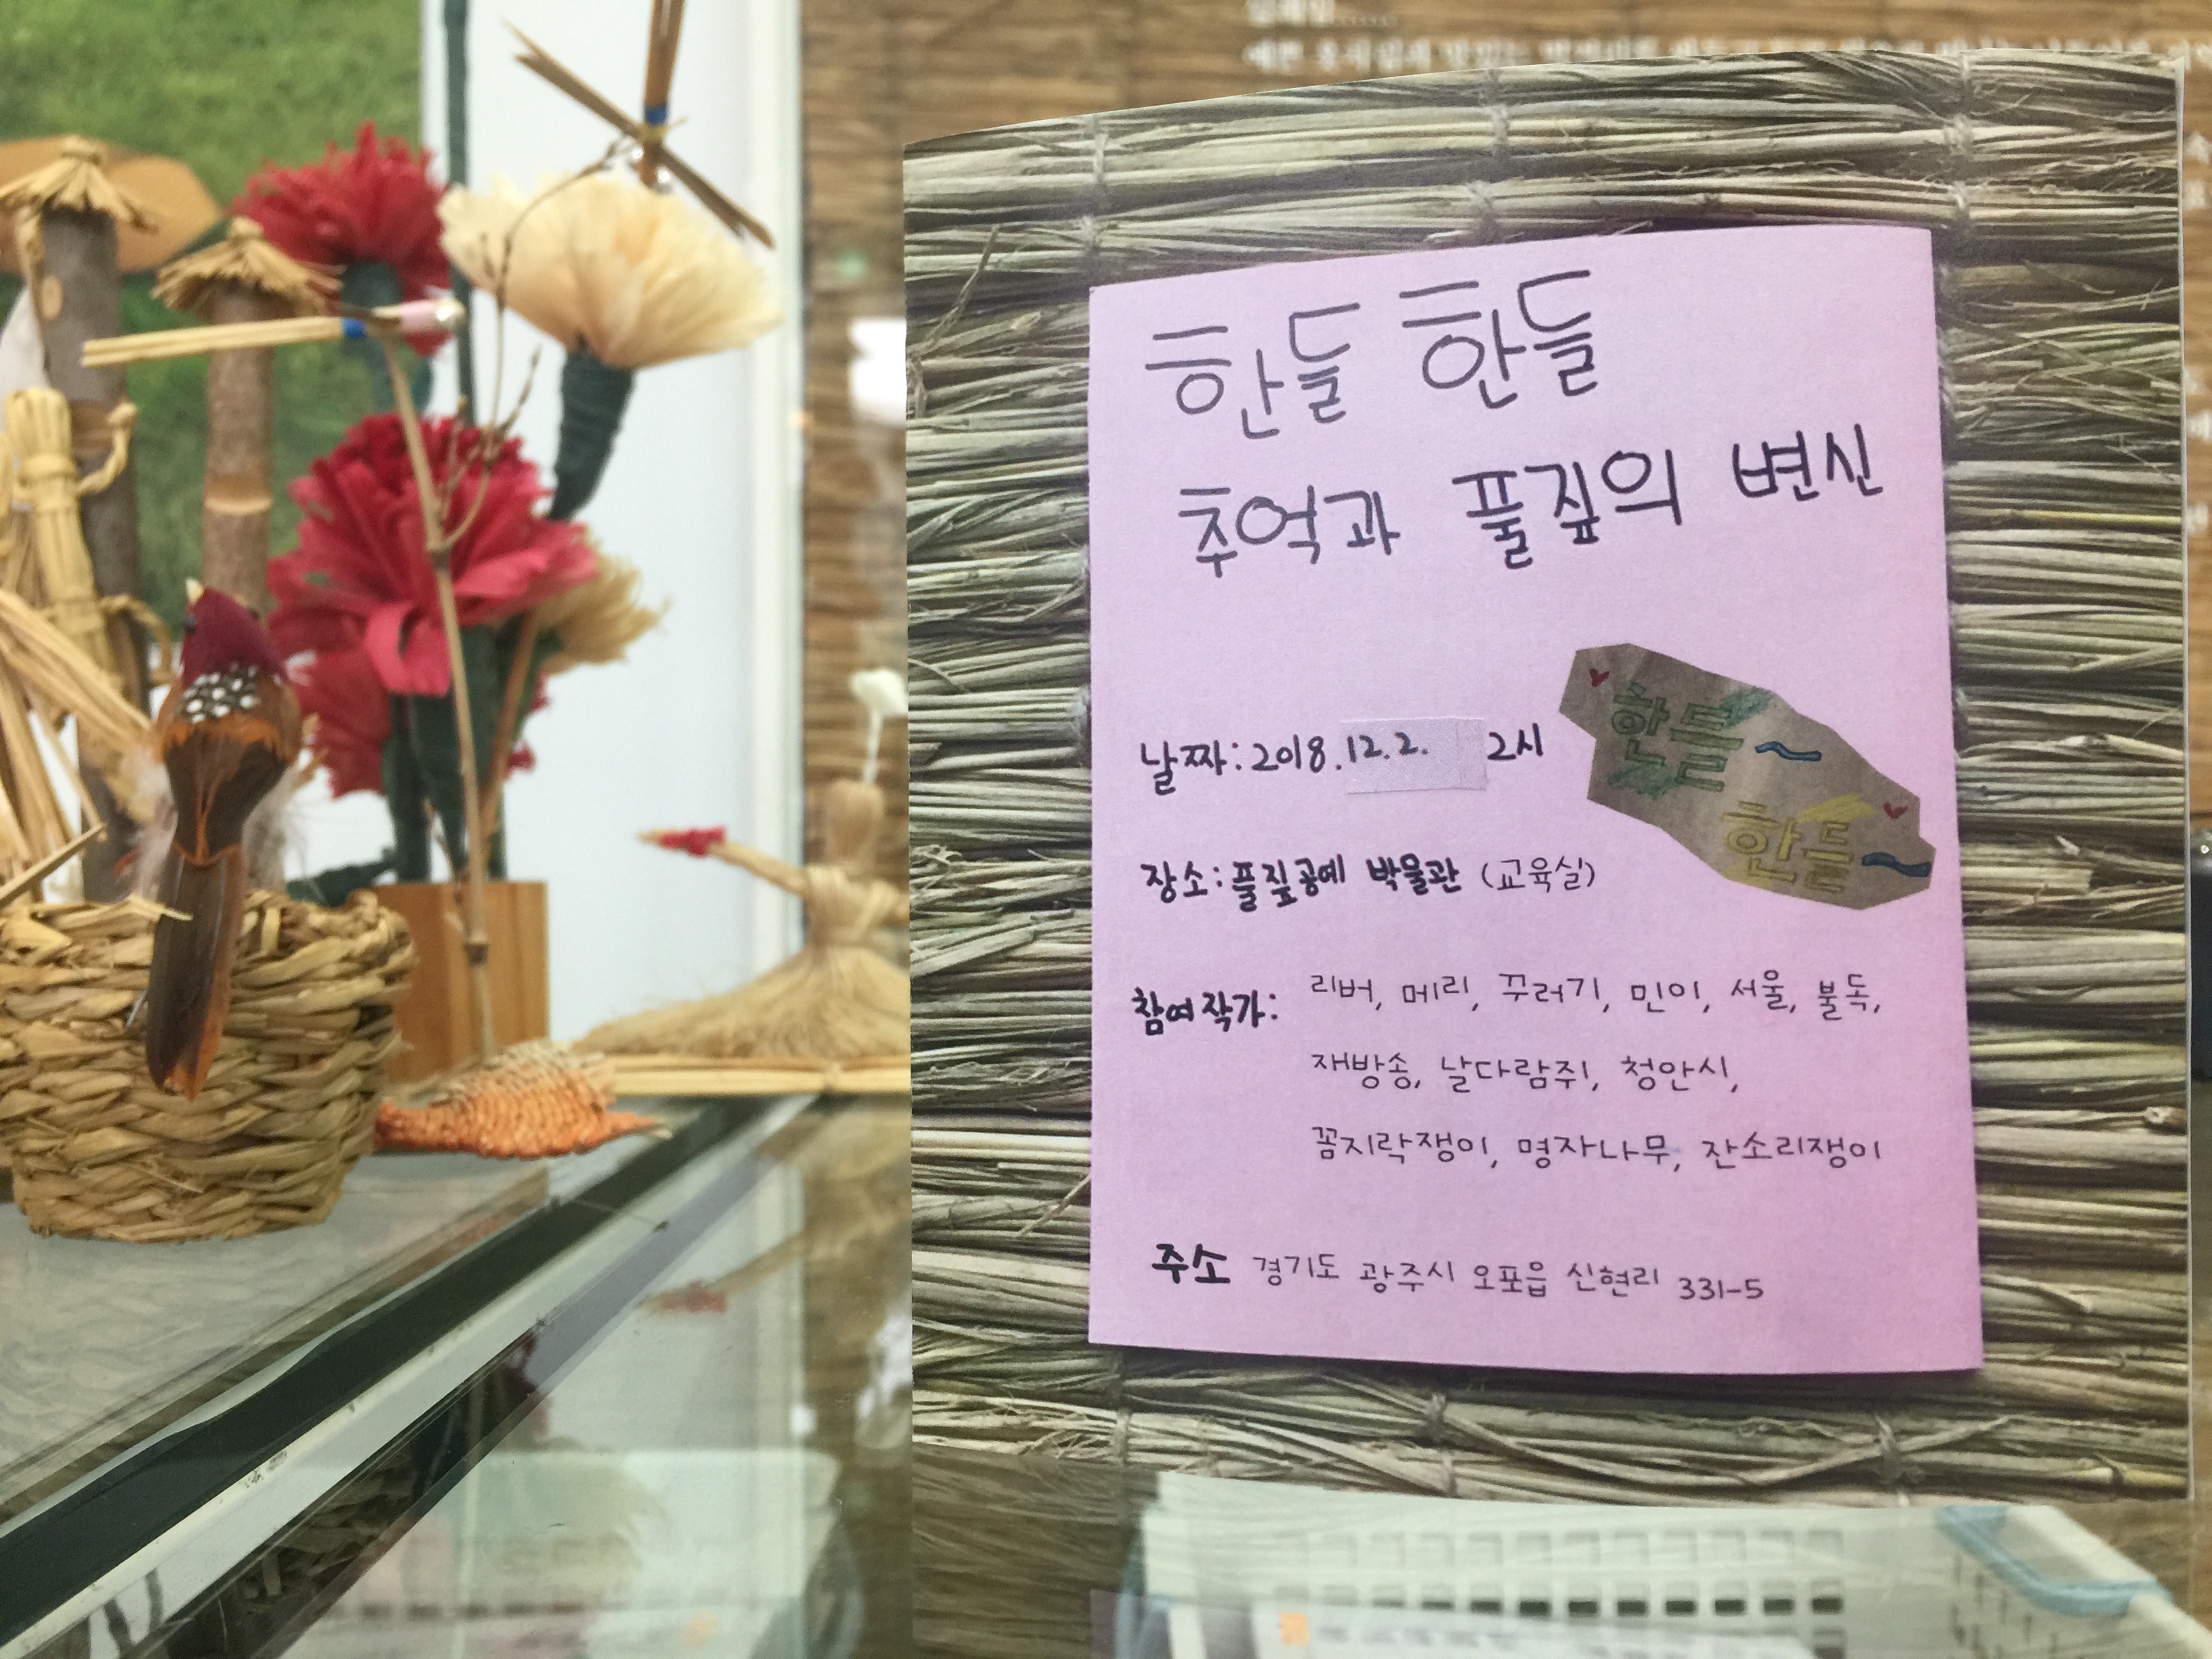 한들 한들
추억과 풀짚의 변신
날짜: 2018.12.2. 2시
한들~
한들~
장소: 풀짚공예 박물관 (교육실)
참여작가: 리버, 메리, 꾸러기, 민이, 서울, 불독,
재방송, 날다람쥐, 청안시,
꼼지락쟁이, 명자나무, 잔소리쟁이
주소 경기도 광주시 오포읍 신현리 331-5